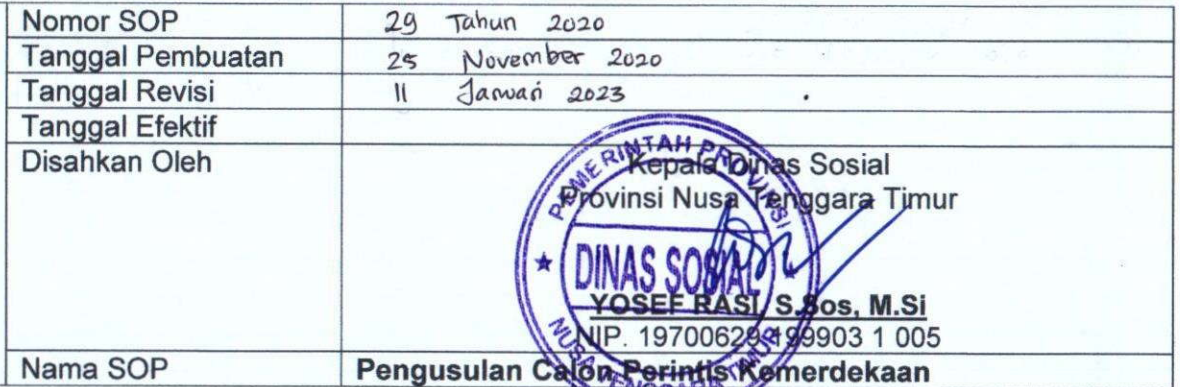 Nomor SOP 29 Tahun 2020
Tanggal Pembuatan 25 November 2020
Tanggal Revisi 11 Januari 2023
Tanggal Efektif
Disahkan Oleh Kepala Dinas Sosial
Provinsi Nusa Tenggara Timur
PEMERINTAH PROVINSI
DINAS SOSIAL
NUSA TENGGARA TIMUR
YOSEF RASI, S.Sos, M.Si
NIP. 19700629 199903 1 005
Nama SOP Pengusulan Calon Perintis Kemerdekaan